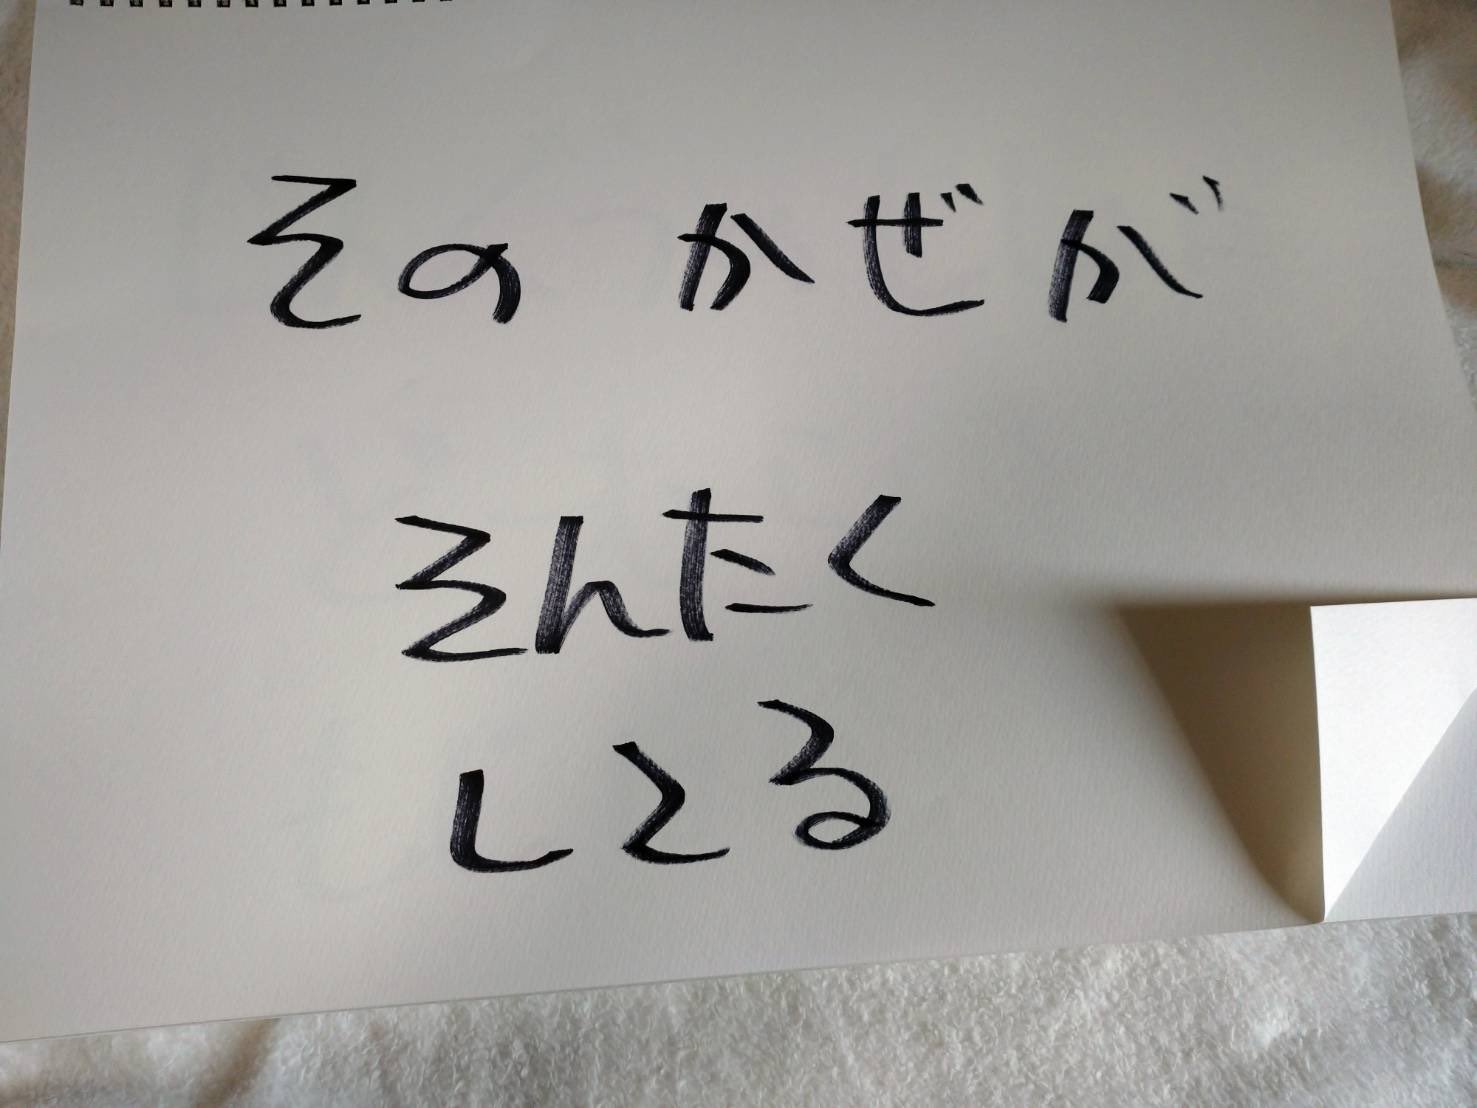 その かぜが
そんたく
してる